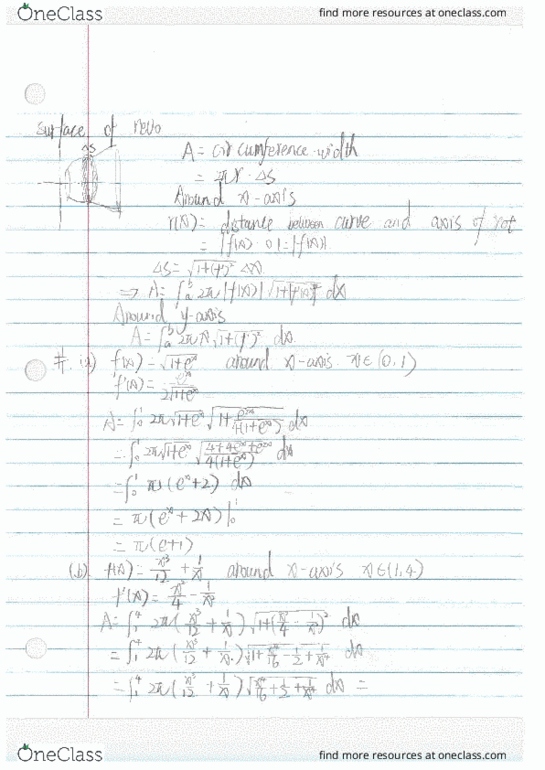 OneClass find more resources at oneclass.com
surface of revo
ΔS
A = circumference·width
= 2πr·ΔS
Around x-axis
r(x) = distance between curve and axis of rot
= |f(x) - 0| = |f(x)|
ΔS = √(1+(f')²) Δx
⇒ A = ∫ₐᵇ 2π|f(x)| √(1+[f'(x)]²) dx
Around y-axis
A = ∫ₐᵇ 2πx √(1+(f')²) dx
#. (a) f(x) = √(1+eˣ) around x-axis. x∈(0,1)
f'(x) = eˣ/(2√(1+eˣ))
A = ∫₀¹ 2π√(1+eˣ) √(1+e²ˣ/(4(1+eˣ))) dx
= ∫₀¹ 2π√(1+eˣ) √((4+4eˣ+e²ˣ)/(4(1+eˣ))) dx
= ∫₀¹ π(eˣ+2) dx
= π(eˣ+2x)|₀¹
= π(e+1)
(b) f(x) = x³/12 + 1/x around x-axis x∈(1,4)
f'(x) = x²/4 - 1/x²
A = ∫₁⁴ 2π(x³/12 + 1/x) √(1+(x²/4 - 1/x²)²) dx
= ∫₁⁴ 2π(x³/12 + 1/x) √(1+x⁴/16 - 1/2 + 1/x⁴) dx
= ∫₁⁴ 2π(x³/12 + 1/x) √(x⁴/16 + 1/2 + 1/x⁴) dx =
OneClass find more resources at oneclass.com